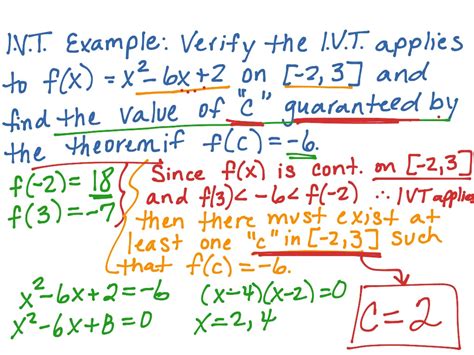 I.V.T. Example: Verify the I.V.T. applies
to f(x) = x²-6x+2 on [-2, 3] and
find the value of "c" guaranteed by
the theorem if f(c) = -6.
f(-2) = 18
f(3) = -7
Since f(x) is cont. on [-2,3]
and f(3) < -6 < f(-2) ∴ IVT applies
then there must exist at
least one "c" in [-2,3] such
that f(c) = -6.
x²-6x+2=-6
x²-6x+8=0
(x-4)(x-2)=0
x=2,4
C=2